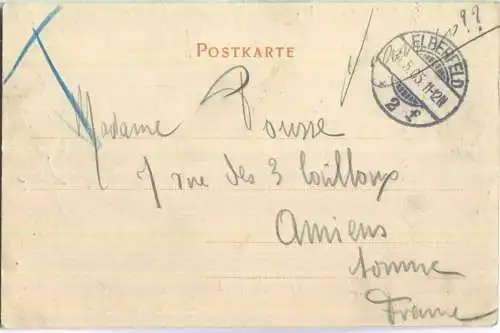 POSTKARTE
ELBERFELD
5.05.11-12N
* 2 f
Madame Pousse
7 rue des 3 Cailloux
Amiens
Somme
France